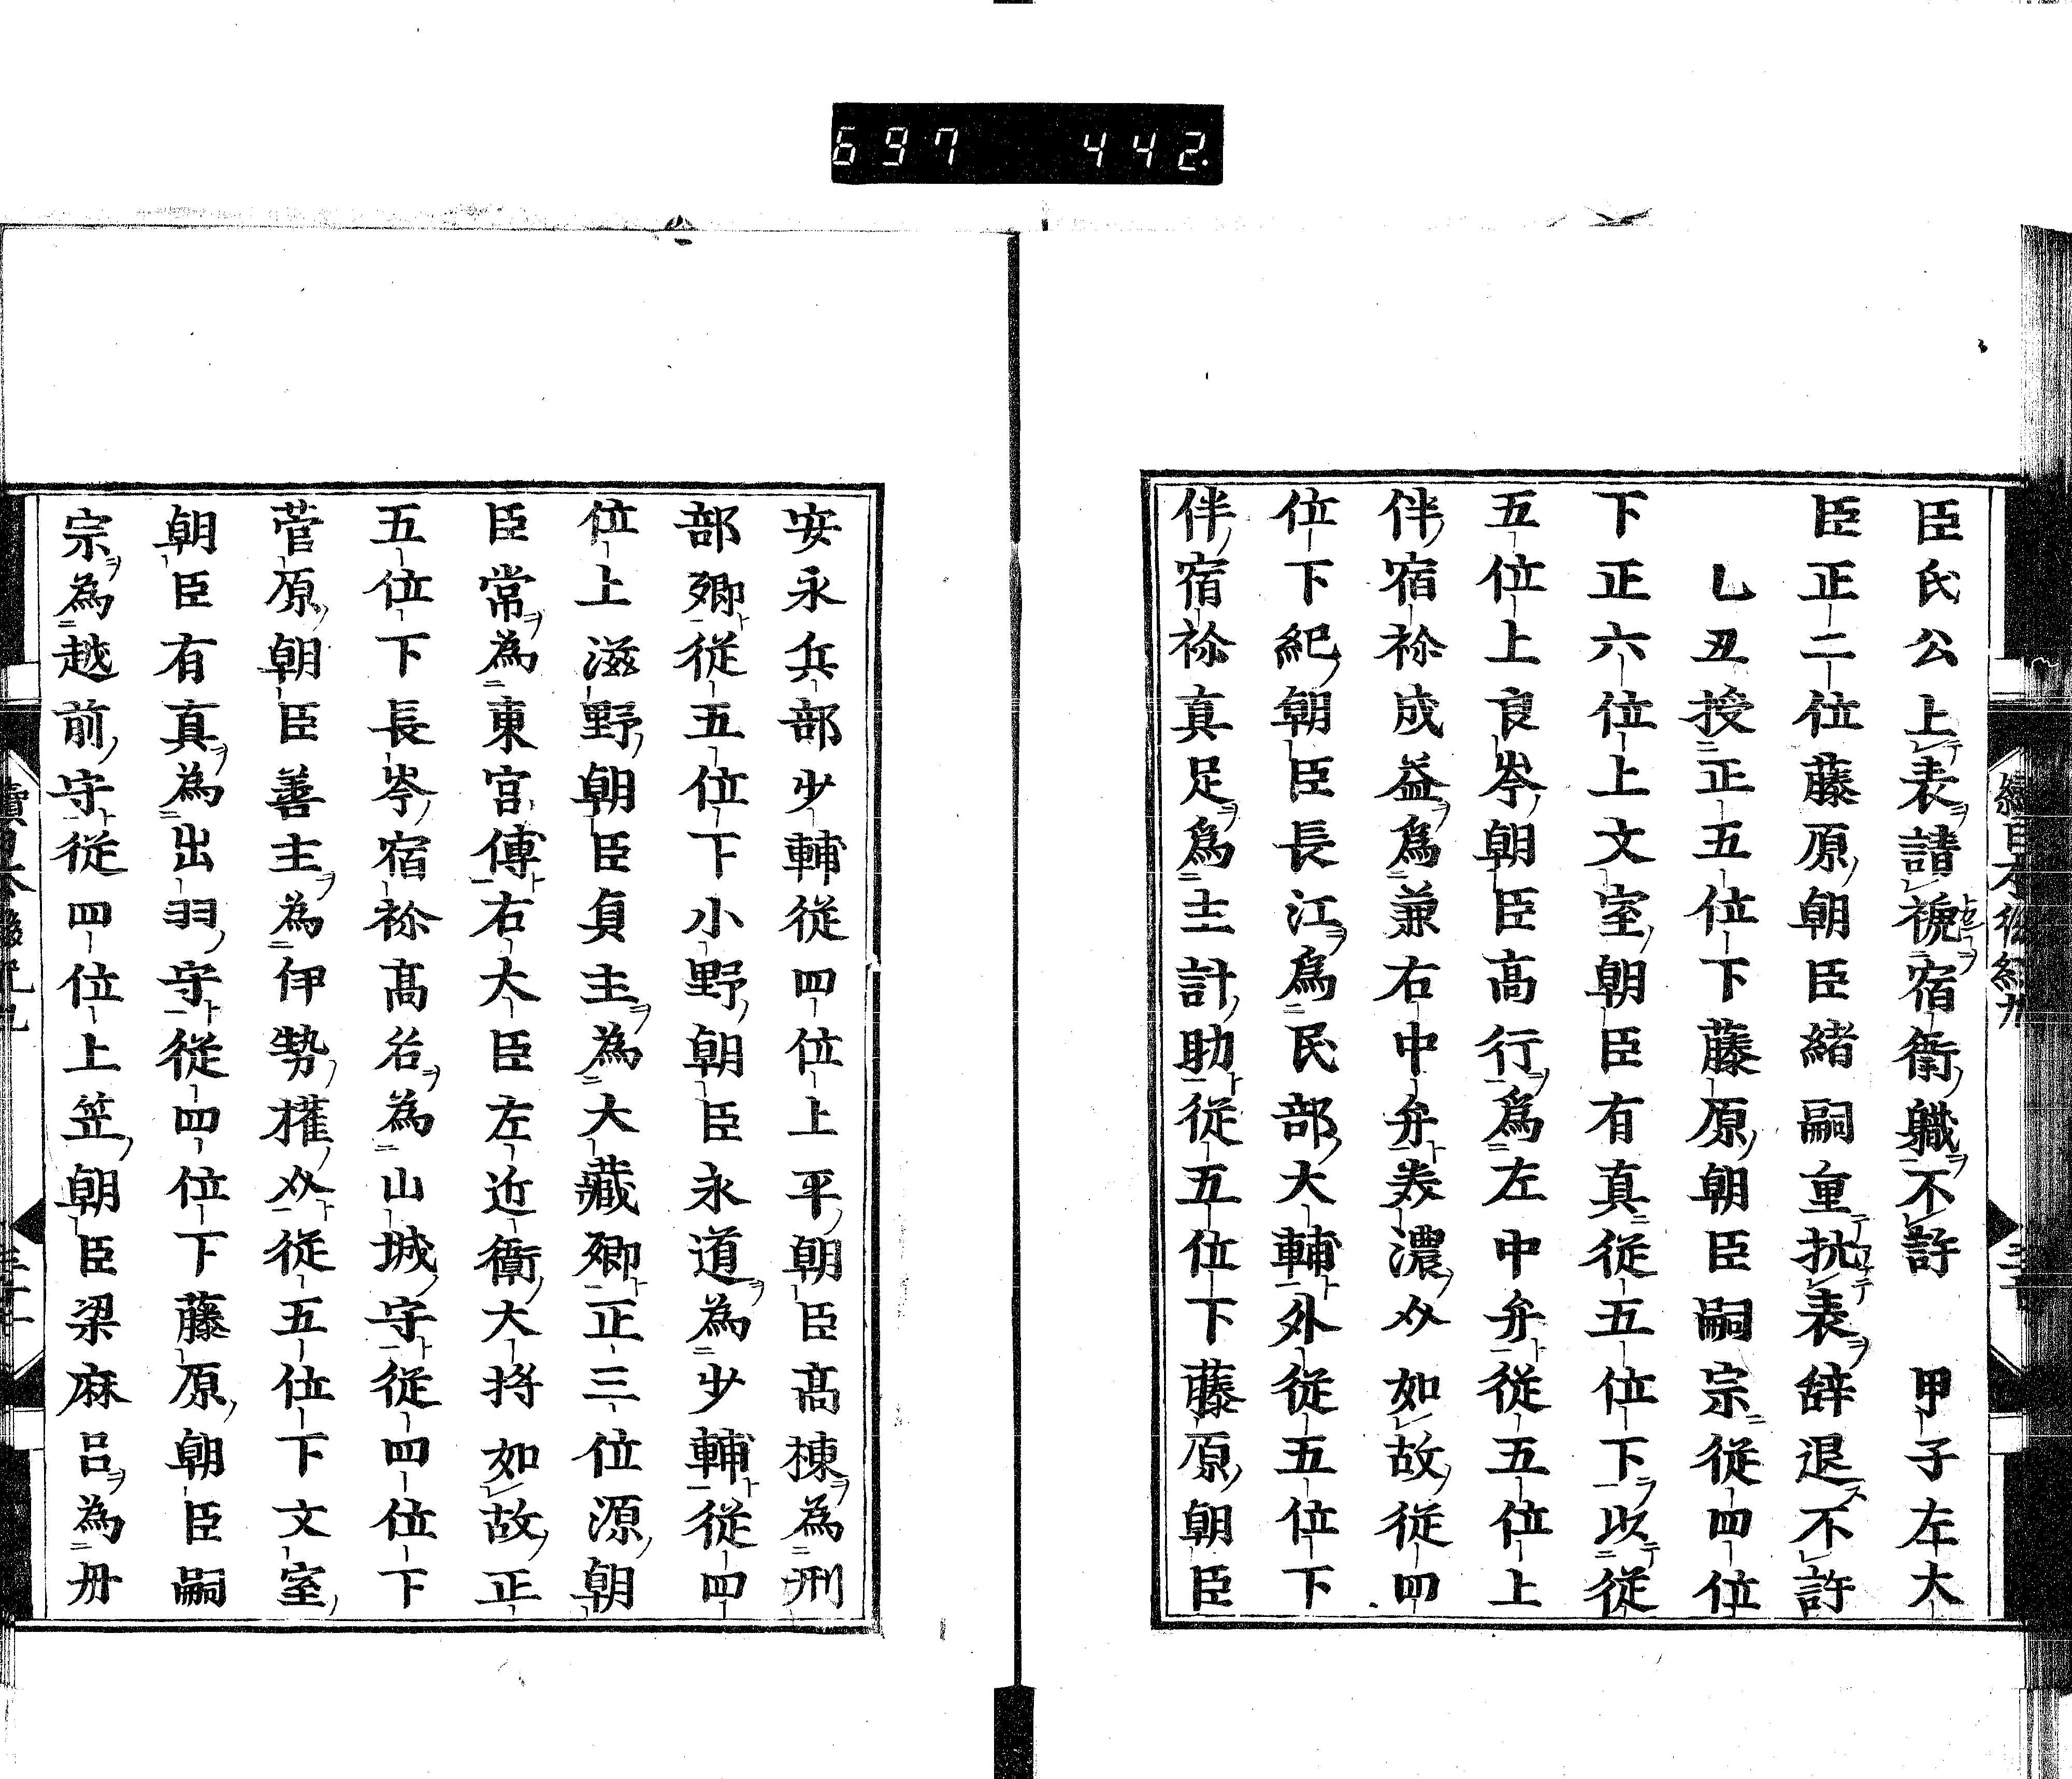 697 442.
臣氏公上表請褫宿衛職不許 甲子左大
臣正二位藤原朝臣緒嗣重抗表辞退不許
乚丑授正五位下藤原朝臣嗣宗従四位
下正六位上文室朝臣有真従五位下以従
五位上良岑朝臣高行為左中弁従五位上
伴宿祢成益為兼右中弁美濃介如故従四
位下紀朝臣長江為民部大輔外従五位下
伴宿祢真足為主計助従五位下藤原朝臣
安永兵部少輔従四位上平朝臣高棟為刑
部卿従五位下小野朝臣永道為少輔従四
位上滋野朝臣貞主為大藏卿正三位源朝
臣常為東宮傅右大臣左近衛大将如故正
五位下長岑宿祢高名為山城守従四位下
菅原朝臣善主為伊勢権介従五位下文室
朝臣有真為出羽守従四位下藤原朝臣嗣
宗為越前守従四位上笠朝臣梁麻呂為丹